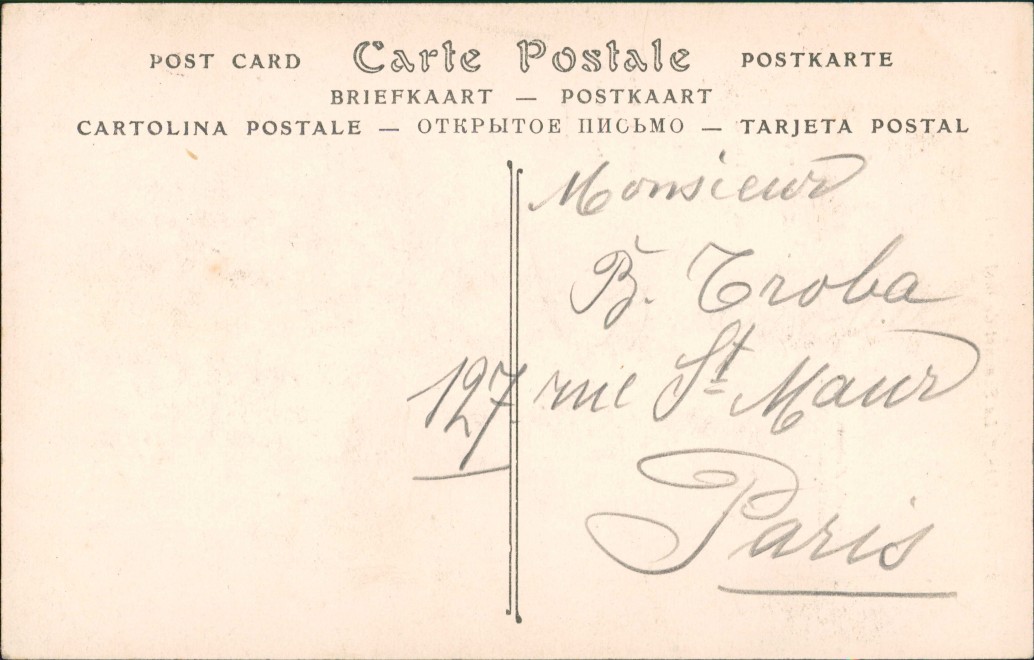 POST CARD Carte Postale POSTKARTE
BRIEFKAART — POSTKAART
CARTOLINA POSTALE — ОТКРЫТОЕ ПИСЬМО — TARJETA POSTAL
Monsieur
B. Troba
127 rue St Maur
Paris